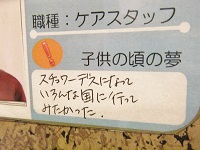 職種：ケアスタッフ
子供の頃の夢
スチュワーデスになって
いろんな国に行って
みたかった。